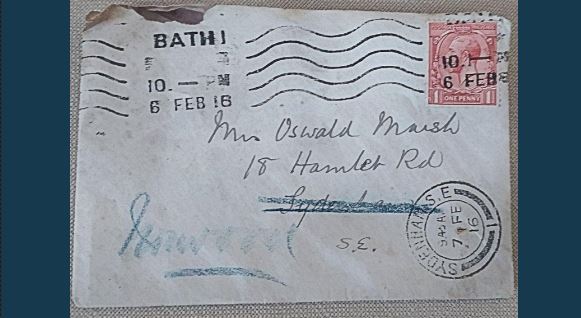 BATH
10. — AM
6 FEB 16
10. — AM
6 FEB 16
ONE PENNY
Mrs Oswald Marsh
18 Hamlet Rd
Sydenham
Norwood
S.E.
SYDENHAM S.E.
9.45 A
7 FE
16